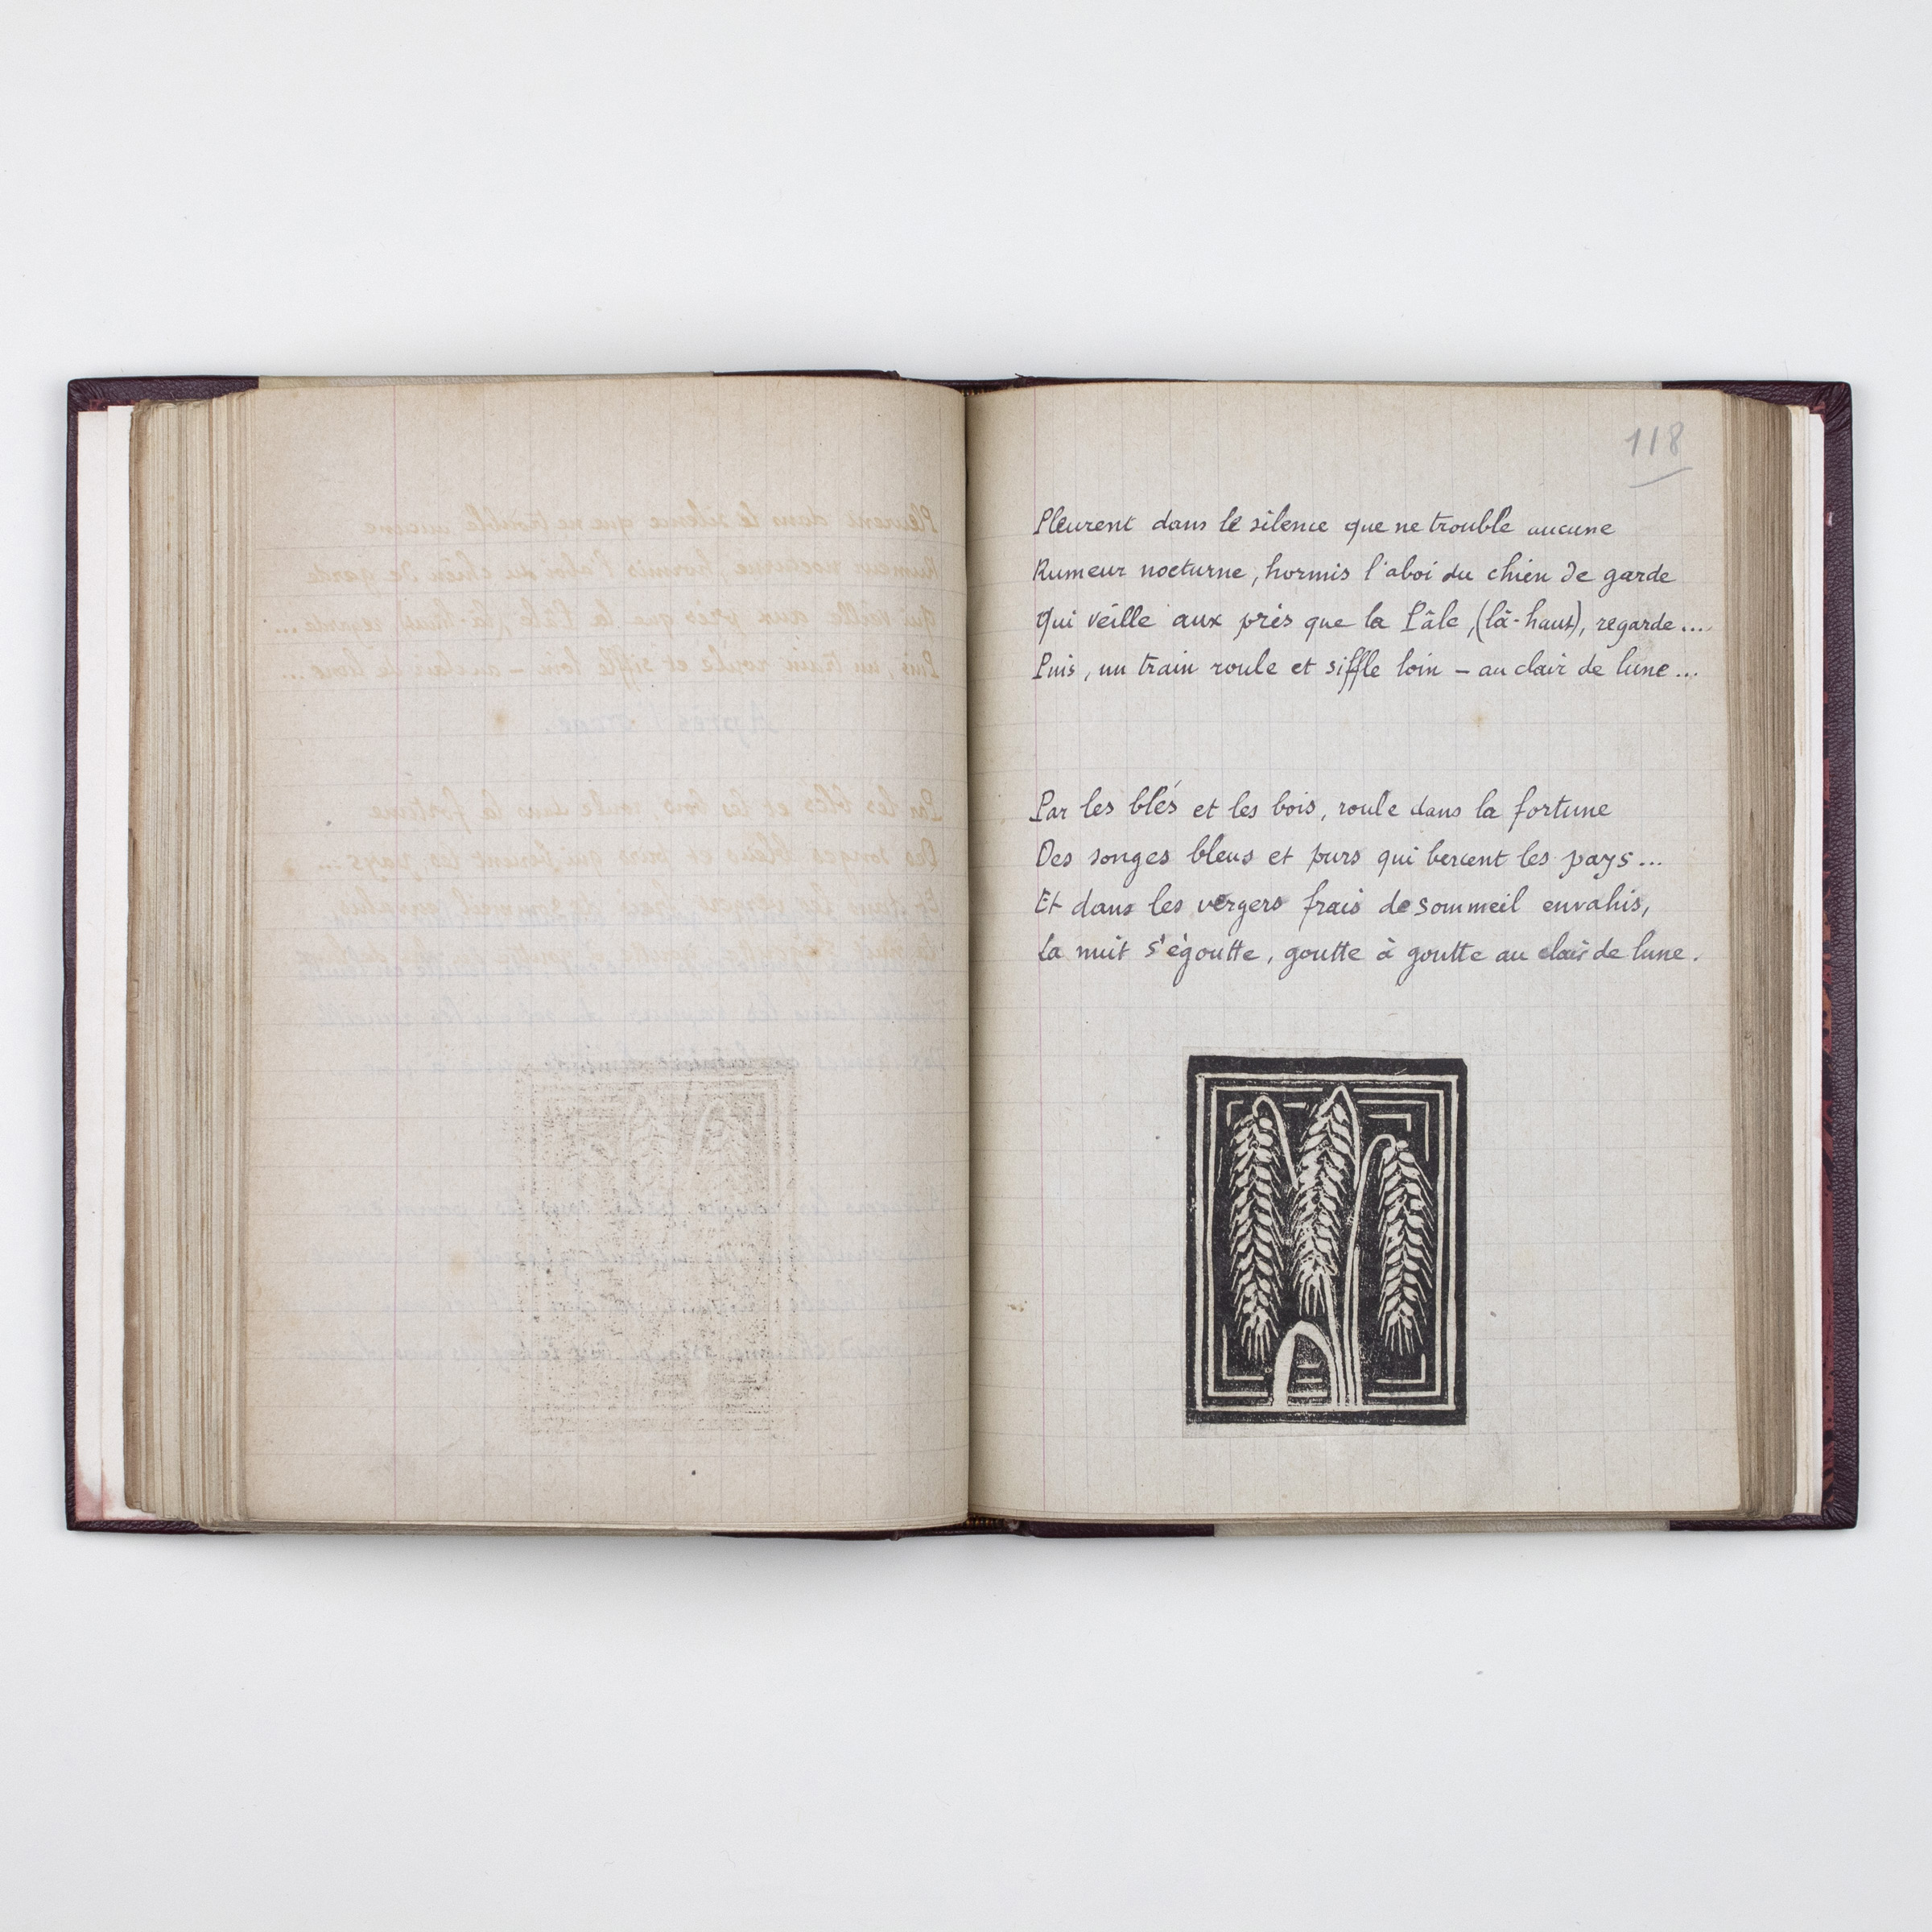 118
Pleurent dans le silence que ne trouble aucune
Rumeur nocturne, hormis l'aboi du chien de garde
Qui veille aux prés que la Pâle, (là-haut), regarde...
Puis, un train roule et siffle loin – au clair de lune...
Par les blés et les bois, roule dans la fortune
Des songes bleus et purs qui bercent les pays...
Et dans les vergers frais de sommeil envahis,
La nuit s'égoutte, goutte à goutte au clair de lune.